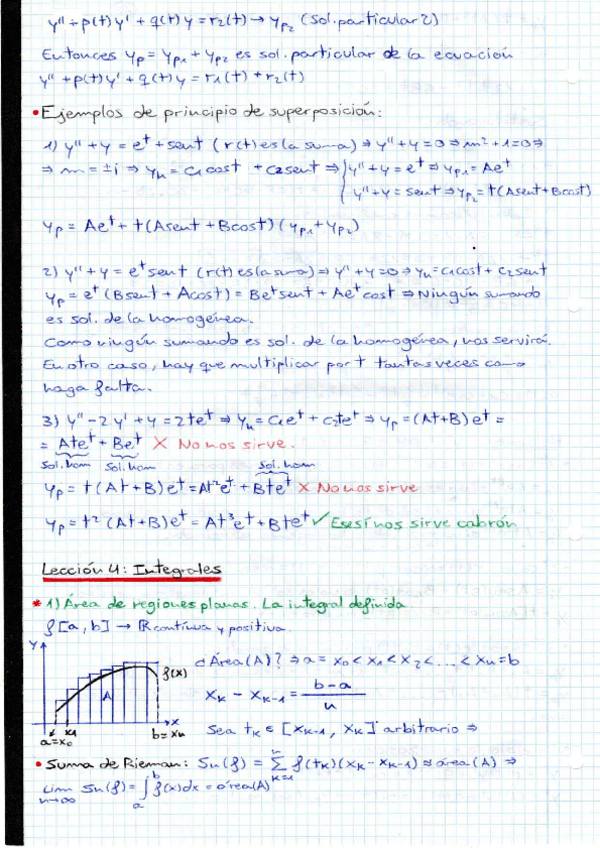 y'' + p(t) y' + q(t) y = r₂(t) → y_p₂ (Sol. particular 2)
Entonces y_p = y_p₁ + y_p₂ es sol. particular de la ecuación
y'' + p(t) y' + q(t) y = r₁(t) + r₂(t)
• Ejemplos de principio de superposición:
1) y'' + y = e^t + sent (r(t) es la suma) ⇒ y'' + y = 0 ⇒ m² + 1 = 0 ⇒
⇒ m = ±i ⇒ y_h = c₁cost + c₂sent ⇒ { y'' + y = e^t ⇒ y_p₁ = Ae^t
y'' + y = sent ⇒ y_p₂ = t(Asent + Bcost)
y_p = Ae^t + t(Asent + Bcost) (y_p₁ + y_p₂)
2) y'' + y = e^t sent (r(t) es la suma) ⇒ y'' + y = 0 ⇒ y_h = c₁cost + c₂sent
y_p = e^t (Bsent + Acost) = Be^t sent + Ae^t cost ⇒ Ningún sumando
es sol. de la homogénea.
Como ningún sumando es sol. de la homogénea, nos servirá.
En otro caso, hay que multiplicar por t tantas veces como
haga falta.
3) y'' - 2y' + y = 2te^t ⇒ y_h = c₁e^t + c₂te^t ⇒ y_p = (At + B)e^t =
= Ate^t + Be^t × No nos sirve.
Sol. hom Sol. hom Sol. hom
y_p = t(At + B)e^t = At²e^t + Bte^t × No nos sirve
y_p = t² (At + B)e^t = At³e^t + Bte^t ✓ Ese sí nos sirve cabrón
Lección 4: Integrales
* 1) Área de regiones planas. La integral definida.
f [a, b] → ℝ contínua y positiva.
Y
f(x)
A
x
a = x₀ x₁ b = xₙ
¿Área(A)? ⇒ a = x₀ < x₁ < x₂ < ... < xₙ = b
x_k - x_k-1 = (b - a)/n
Sea t_k ∈ [x_k-1, x_k] arbitrario ⇒
• Suma de Rieman: Sn(f) = Σ_{k=1}^{n} f(t_k)(x_k - x_k-1) ≈ área(A) ⇒
Lim_{n→∞} Sn(f) = ∫_a^b f(x)dx = área(A)